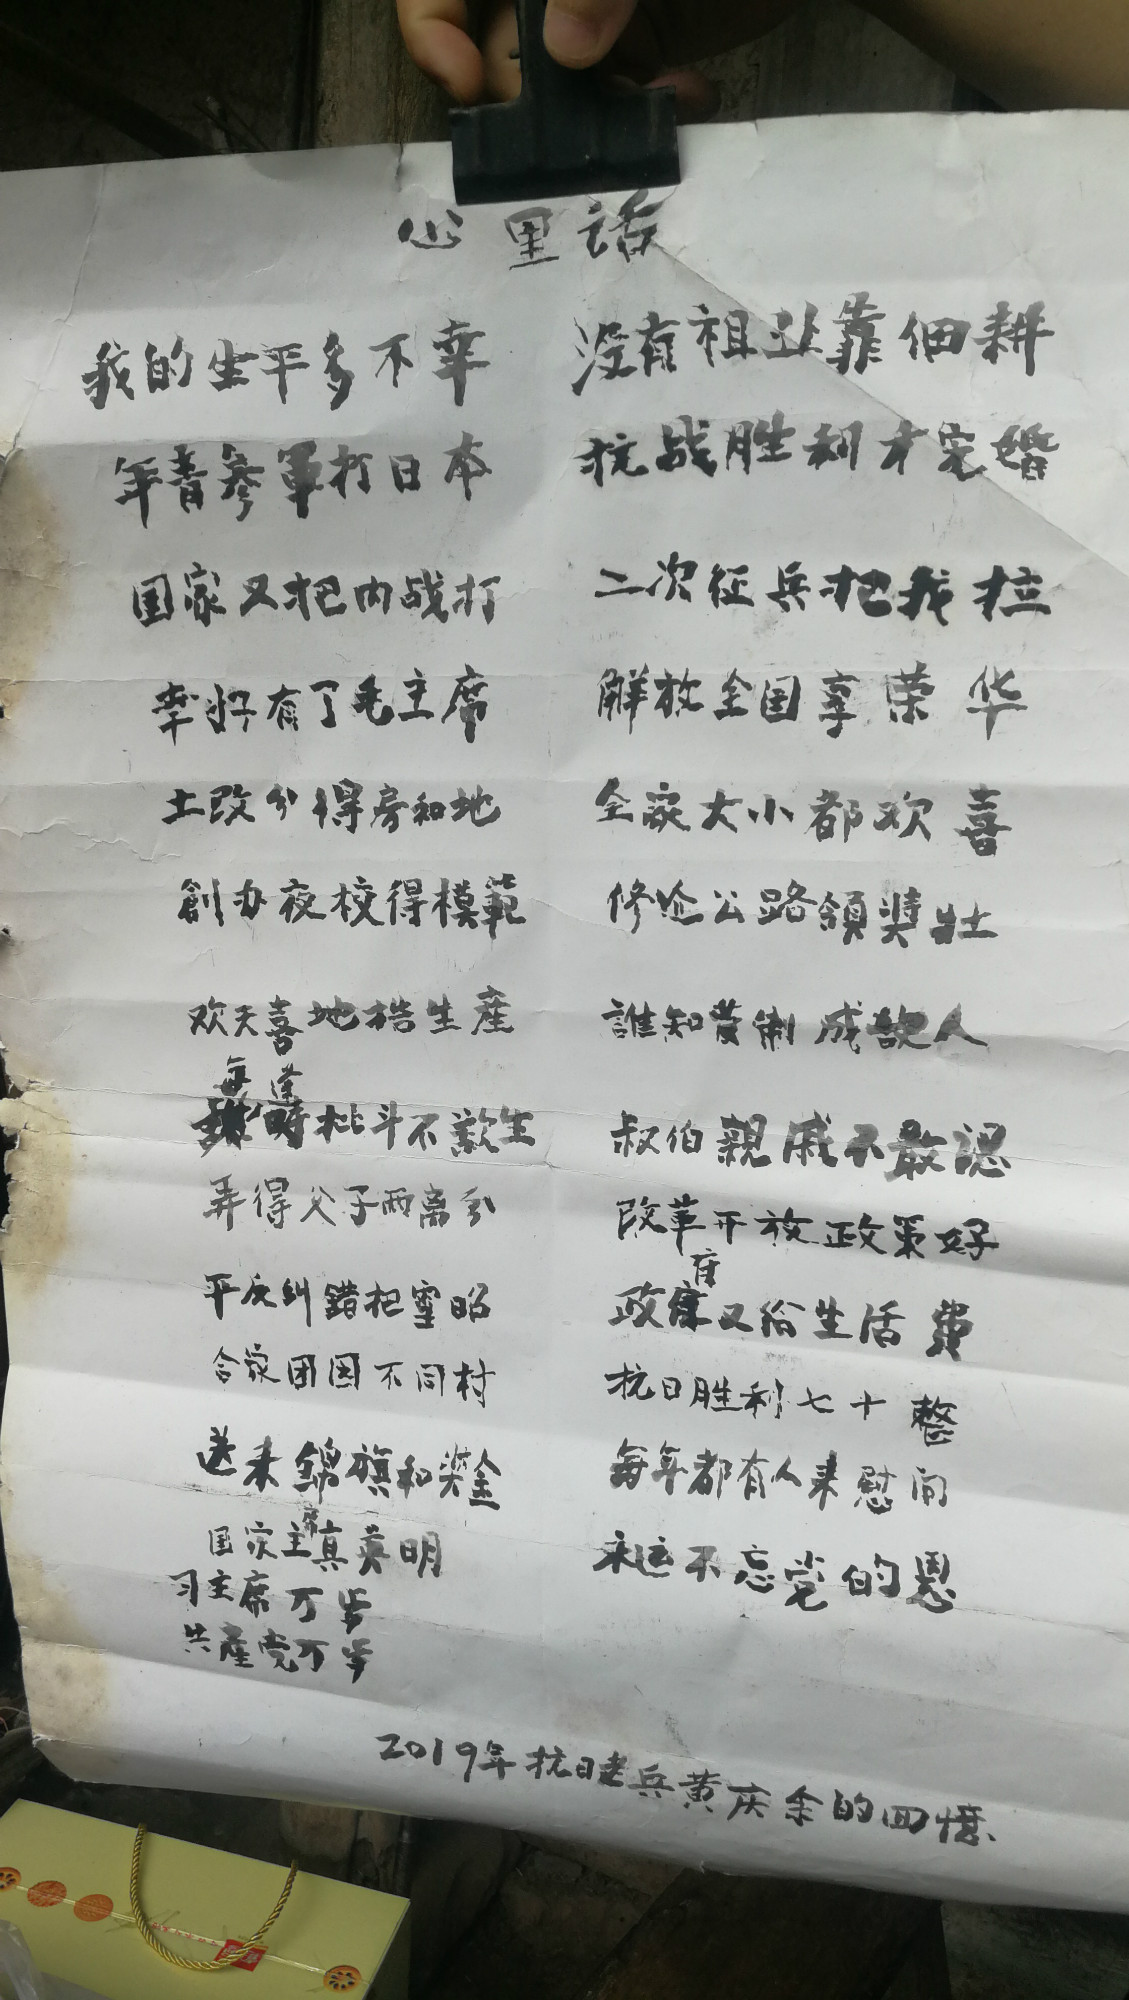 心里话
我的生平多不幸 没有祖业靠佃耕
年青参軍打日本 抗战胜利才完婚
国家又把内战打 二次征兵把我拉
幸好有了毛主席 解放全国享荣华
土改分得房和地 全家大小都欢喜
創办夜校得模範 修公路領奬壮
欢天喜地搞生産 誰知管制成敌人
每逢時批斗不歡生 叔伯親戚不敢認
弄得父子两離分 改革开放政策好
平反糾錯把靈昭 政府又给生活费
合家团圆不同村 抗日胜利七十整
送来錦旗和奖金 每年都有人来慰问
国家主席真英明 永远不忘党的恩
习主席万岁
共産党万岁
2019年抗日老兵黄庆余的回憶